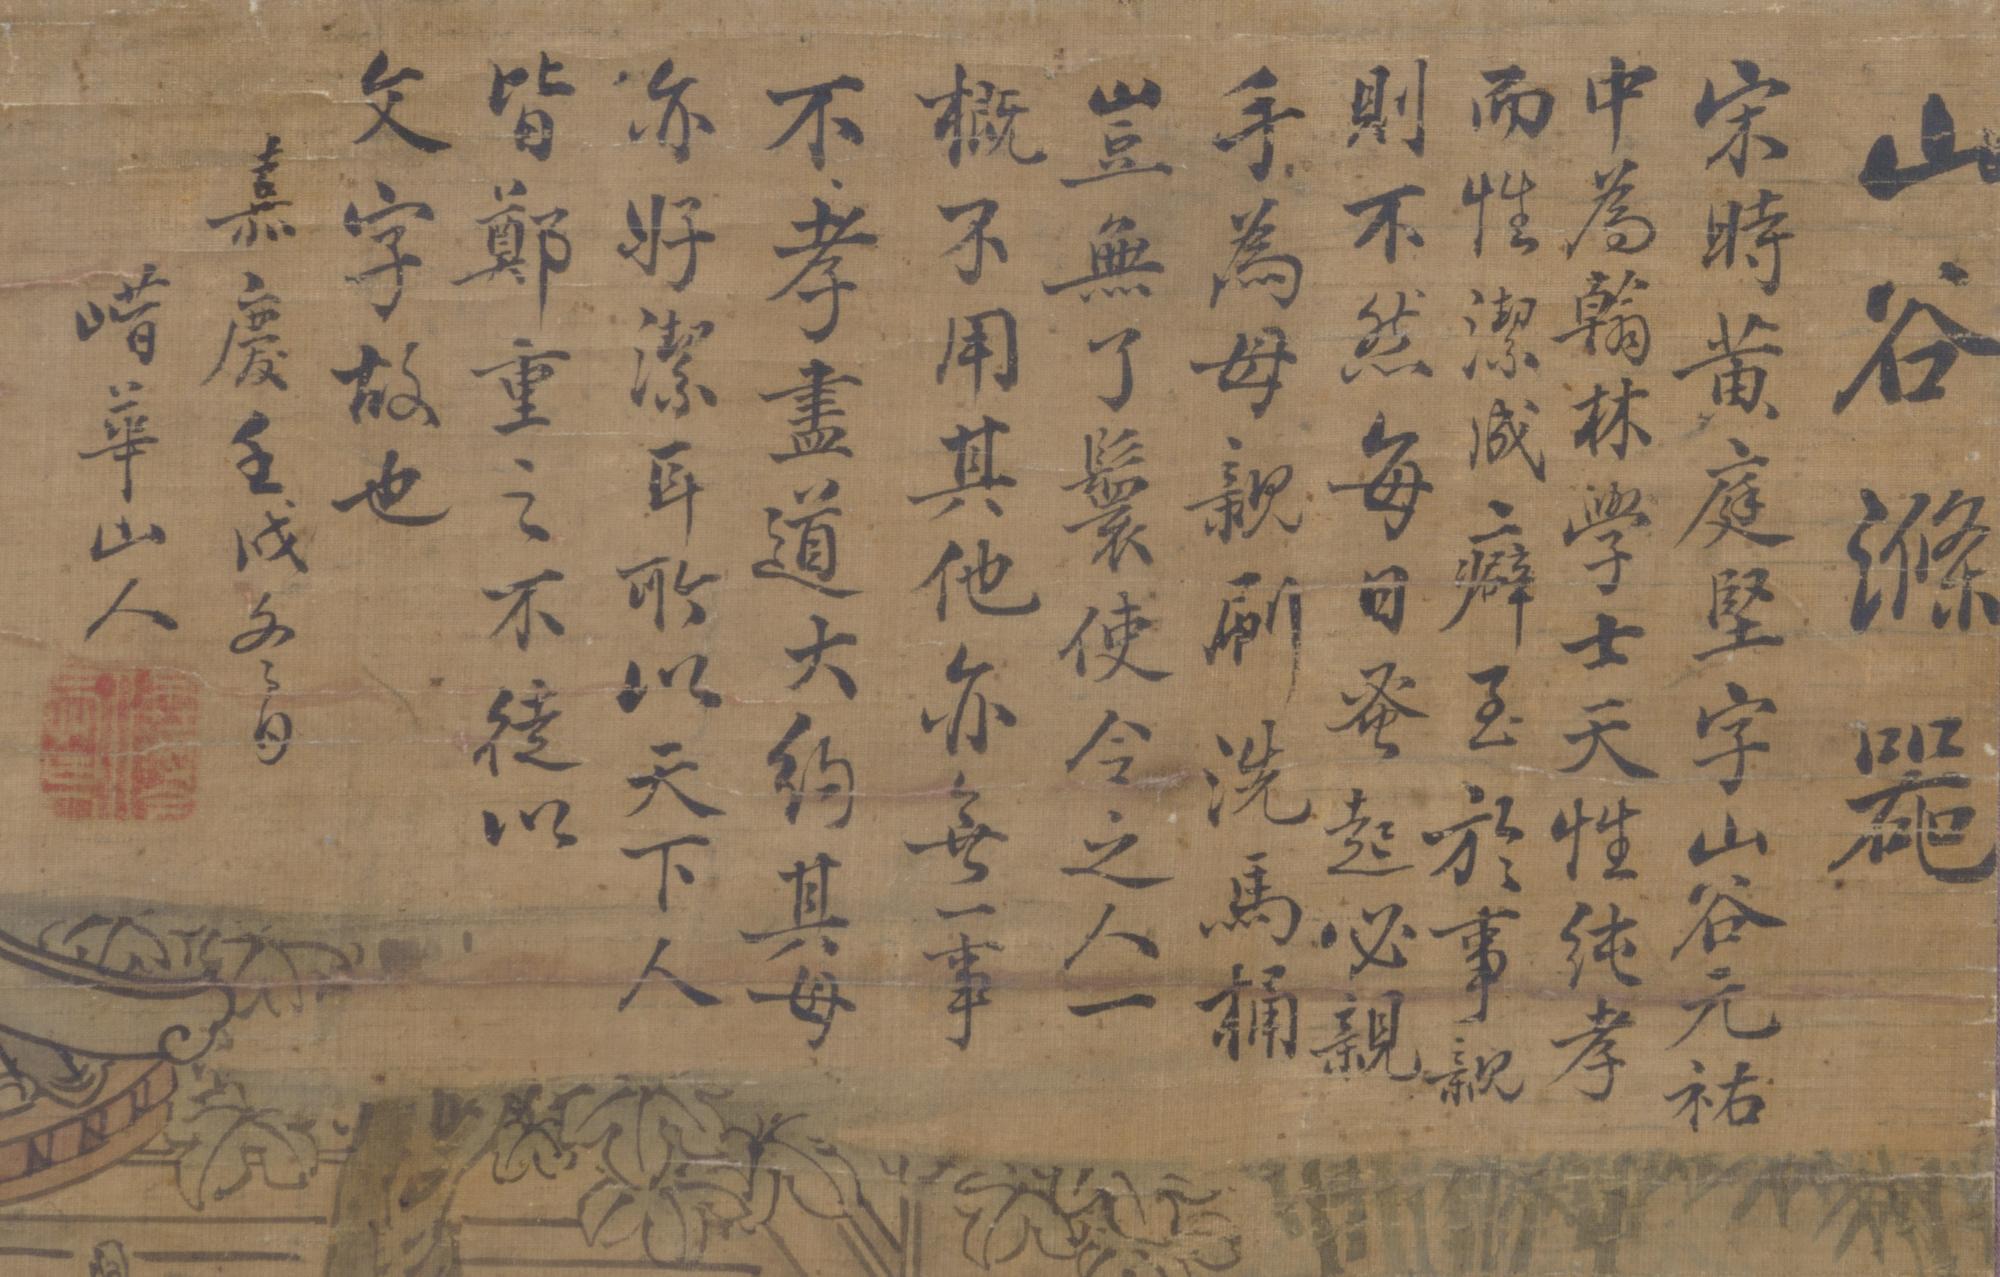 山谷滌器
宋時黃庭堅字山谷元祐
中為翰林學士天性純孝
而性潔成癖至於事親
則不然每日蚤起必親
手為母親刷洗馬桶
豈無了鬟使令之人一
概不用其他亦無一事
不孝盡道大約其母
亦好潔耳所以天下人
皆鄭重之不徒以
文字故也
嘉慶壬戌冬日
華山人